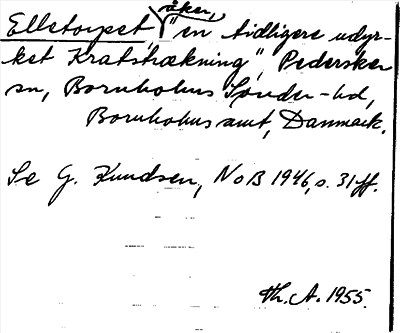 åker,
Ellstorpet, "en tidligere udyr-
ket Kratstrækning", Pedersker
sn, Bornholms Sønder-hd,
Bornholms amt, Danmark.
Se G. Knudsen, NoB 1946, s. 31 ff.
Th. A. 1955.